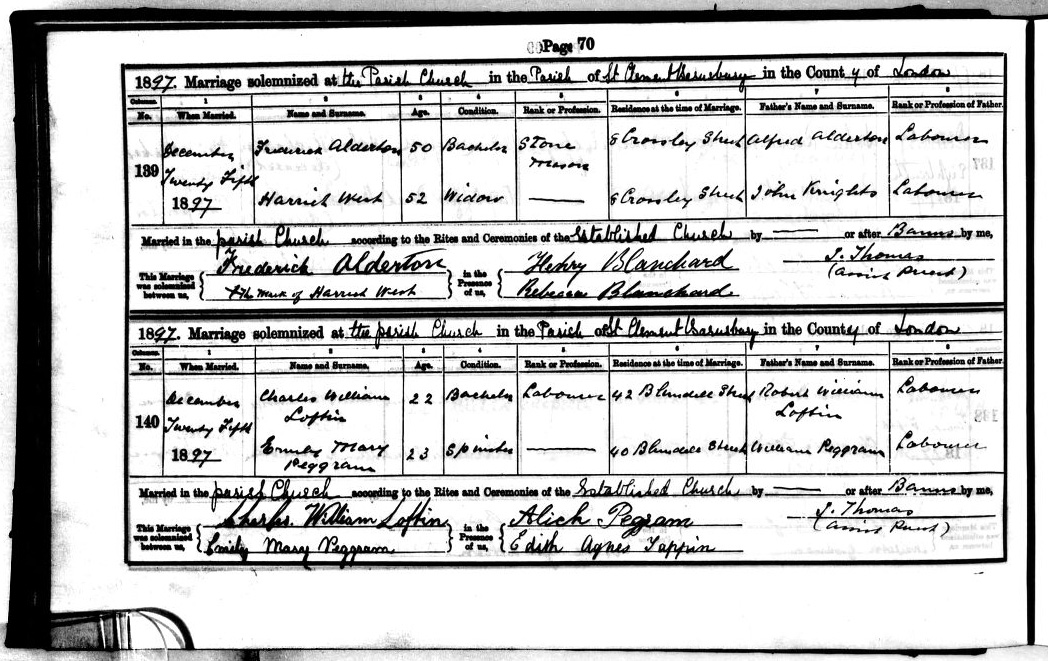 Page 70
1897. Marriage solemnized at the Parish Church in the Parish of St Clement Barnsbury in the County of London
Columns. 1 2 3 4 5 6 7 8
No. When Married. Name and Surname. Age. Condition. Rank or Profession. Residence at the time of Marriage. Father's Name and Surname. Rank or Profession of Father.
December Frederick Alderton 50 Bachelor Stone 8 Crossley Street Alfred Alderton Labourer
mason
139 Twenty Fifth
1897 Harriet West 52 Widow —— 8 Crossley Street John Knights Labourer
Married in the parish Church according to the Rites and Ceremonies of the Established Church by —— or after Banns by me,
This Marriage was solemnized between us, Frederick Alderton in the Presence of us, Henry Blanchard J. Thomas
X the mark of Harriet West Rebecca Blanchard (Assist Priest)
1897. Marriage solemnized at the parish Church in the Parish of St Clement Barnsbury in the County of London
Columns. 1 2 3 4 5 6 7 8
No. When Married. Name and Surname. Age. Condition. Rank or Profession. Residence at the time of Marriage. Father's Name and Surname. Rank or Profession of Father.
December Charles William 22 Bachelor Labourer 42 Blundell Street Robert William Labourer
140 Twenty Fifth Loftin Loftin
1897 Emily Mary 23 Spinster —— 40 Blundell Street William Peggram Labourer
Peggram
Married in the parish Church according to the Rites and Ceremonies of the Established Church by —— or after Banns by me,
This Marriage was solemnized between us, Charles William Loftin in the Presence of us, Alick Pegram J. Thomas
Emily Mary Peggram Edith Agnes Tappin (Assist Priest)